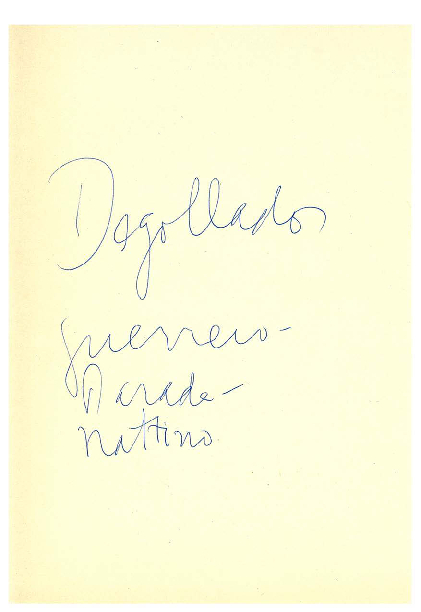 Degollados
Guerrero-
Parada-
Nattino